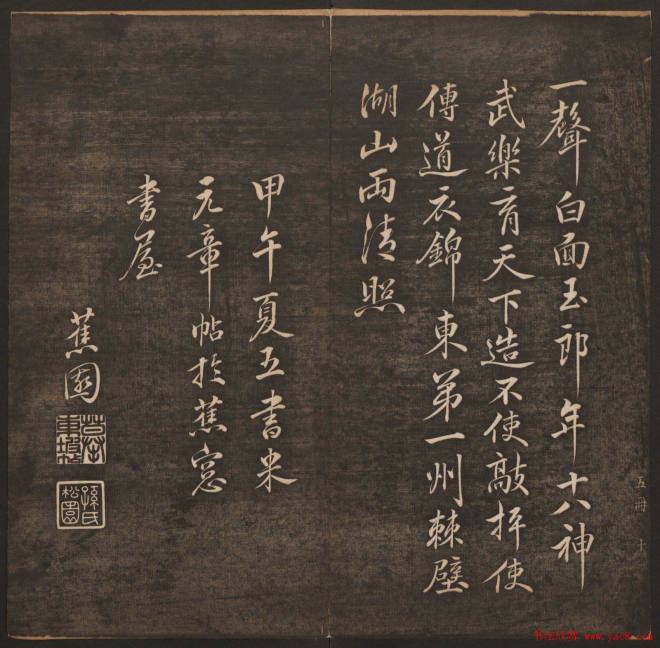 一聲白面玉郎年十八神
武樂育天下造不使敲抨使
傳道衣錦東第一州棘壁
湖山兩清照
甲午夏五書米
元章帖於蕉窓
书屋
蕉園
孫氏
松園
五冊 十